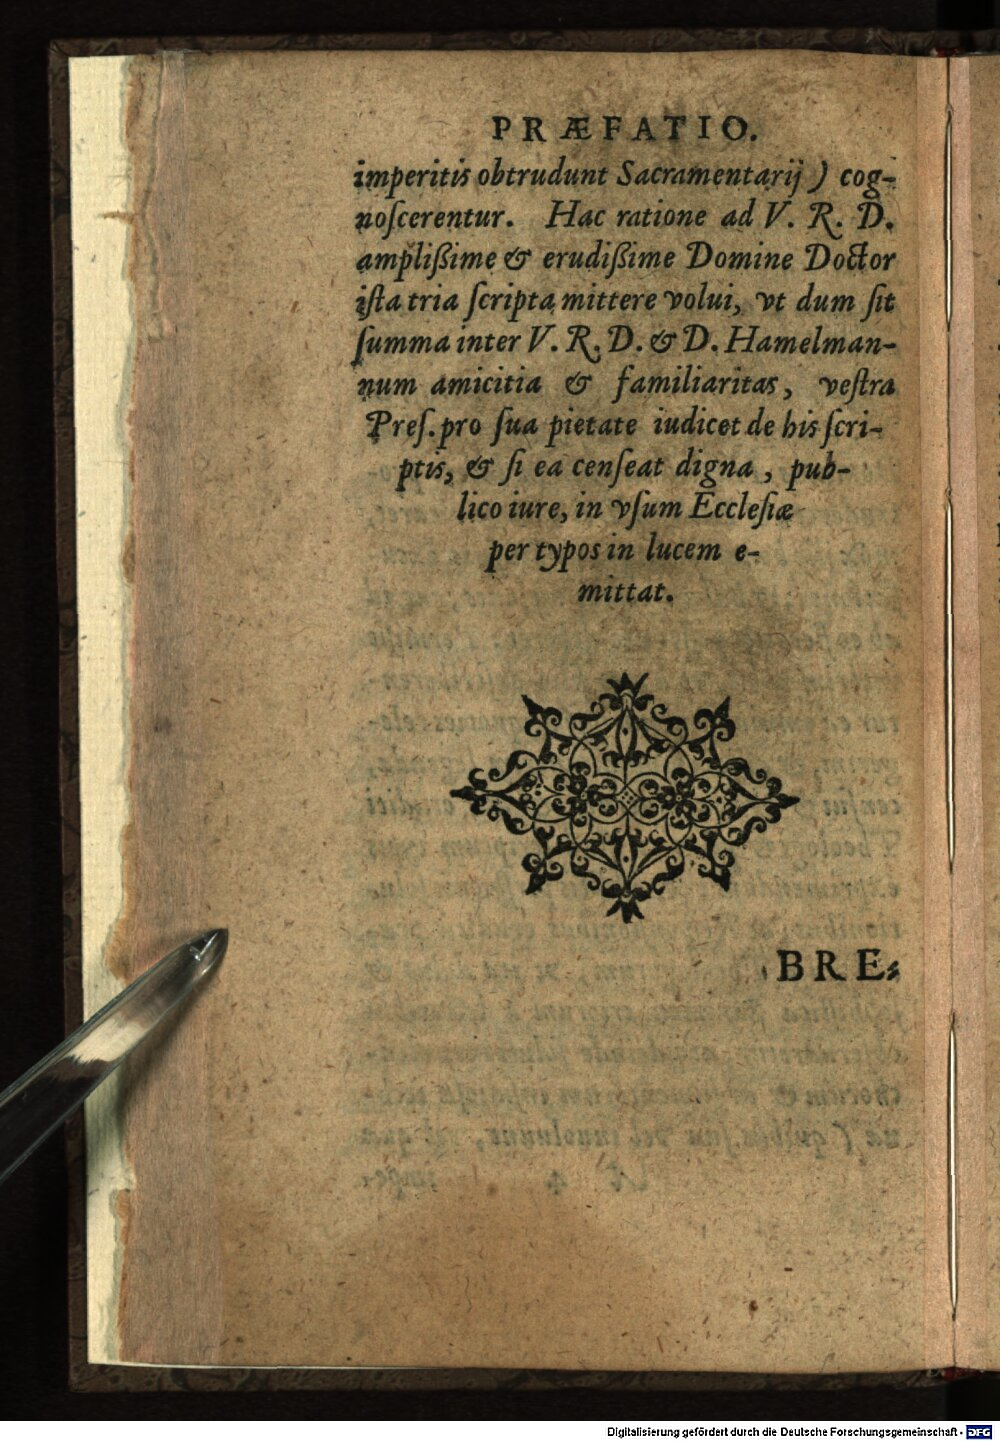 PRÆFATIO.
imperitis obtrudunt Sacramentarij) cog-
noſcerentur. Hac ratione ad V. R. D.
amplißime & erudißime Domine Doctor
iſta tria ſcripta mittere volui, vt dum ſit
ſumma inter V. R. D. & D. Hamelman-
num amicitia & familiaritas, veſtra
Præſ. pro ſua pietate iudicet de his ſcri-
ptis, & ſi ea cenſeat digna, pub-
lico iure, in vſum Eccleſiæ
per typos in lucem e-
mittat.
BRE-
Digitalisierung gefördert durch die Deutsche Forschungsgemeinschaft - DFG